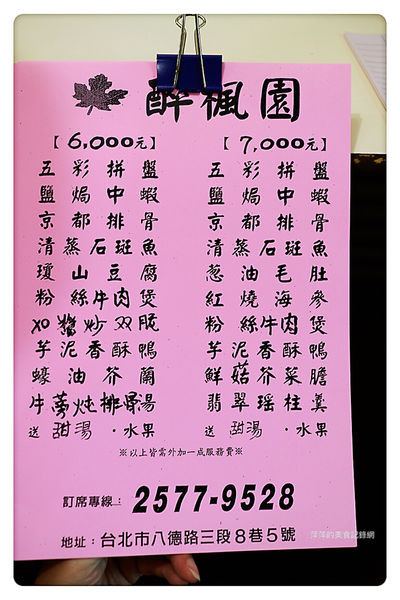 醉楓園
【6,000元】 【7,000元】
五彩拼盤 五彩拼盤
鹽焗中蝦 鹽焗中蝦
京都排骨 京都排骨
清蒸石斑魚 清蒸石斑魚
瓊山豆腐 蔥油毛肚
粉絲牛肉煲 紅燒海參
XO醬炒双脆 粉絲牛肉煲
芋泥香酥鴨 芋泥香酥鴨
蠔油芥蘭 鮮菇芥菜膽
牛蒡炖排骨湯 翡翠瑤柱羹
送甜湯·水果 送甜湯·水果
※以上皆需外加一成服務費※
訂席專線：2577-9528
地址：台北市八德路三段8巷5號
萍萍的美食記錄網